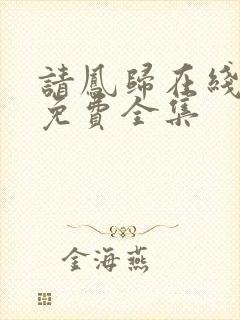 請鳳歸在綫
免費全集
金海燕